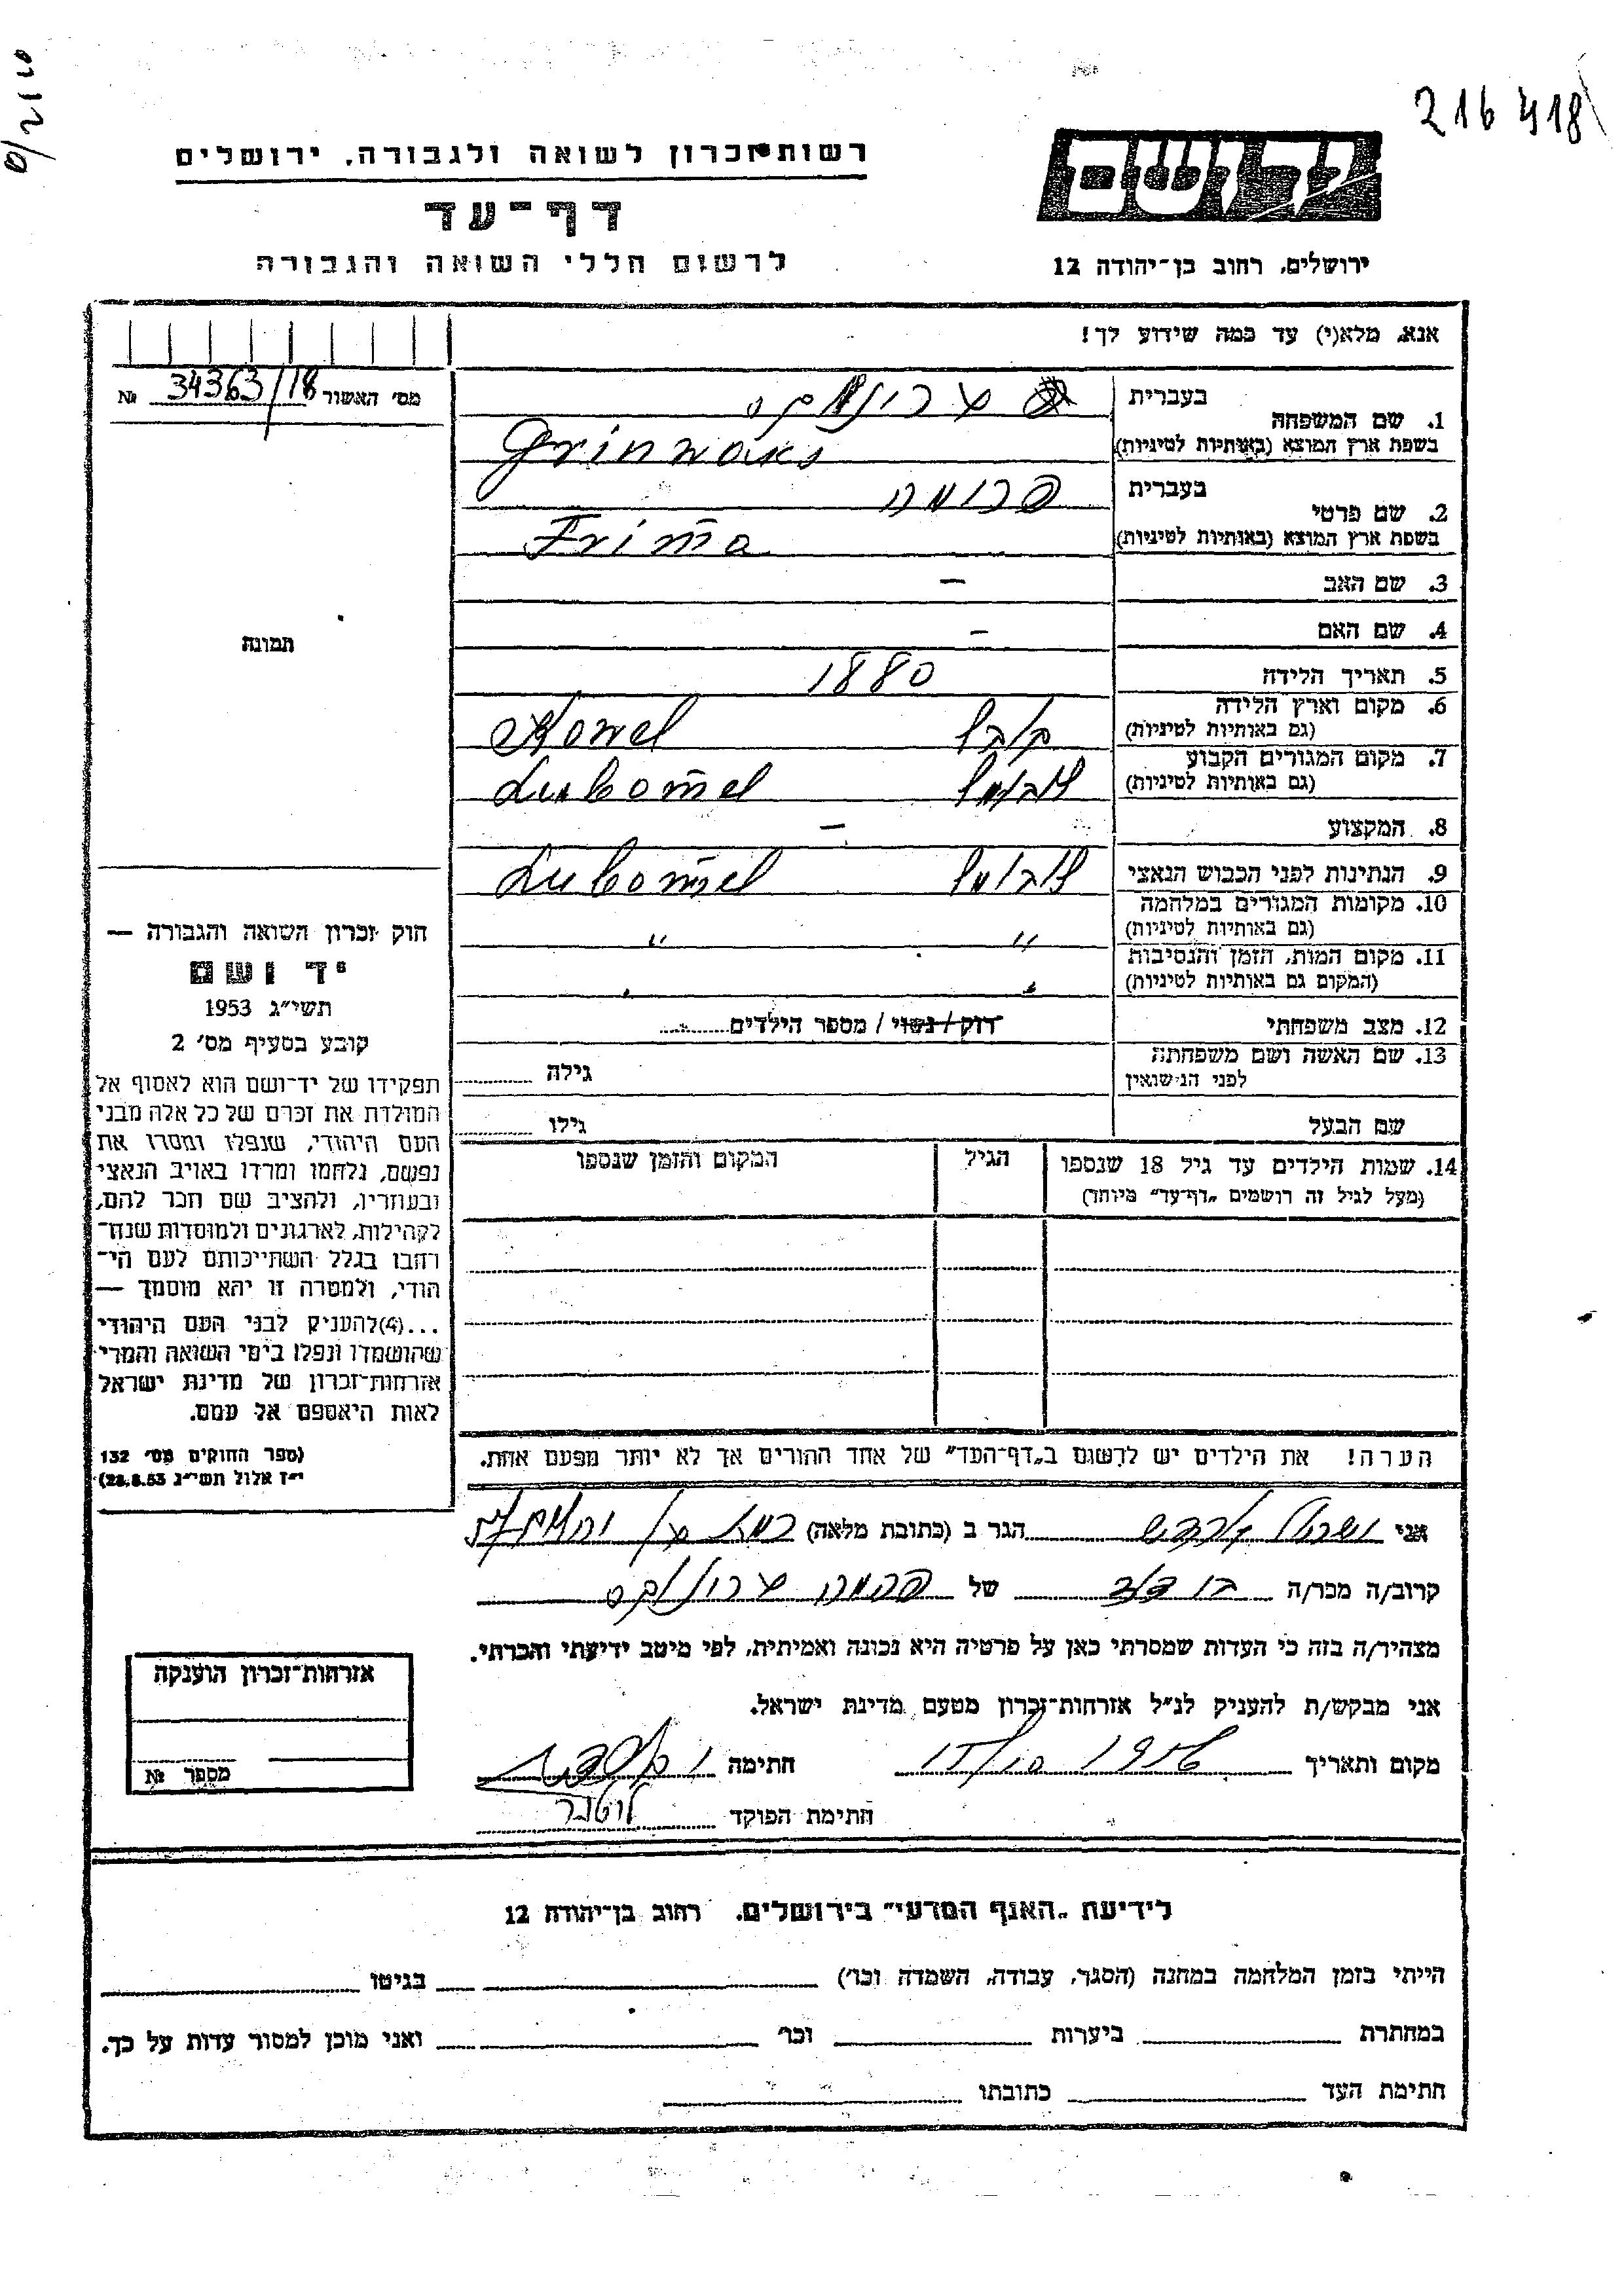 216418
רשות זכרון לשואה ולגבורה, ירושלים
יד ושם
דף־עד
לרשום חללי השואה והגבורה
ירושלים, רחוב בן־יהודה 12
אנא, מלא(י) עד כמה שידוע לך!
מס' האשור 34363/18 №
1. שם המשפחה
בעברית
בשפת ארץ המוצא (באותיות לטיניות) Grinwaks
2. שם פרטי
בעברית פרומה
בשפת ארץ המוצא (באותיות לטיניות) Frima
3. שם האב –
4. שם האם –
תמונה
5. תאריך הלידה 1880
6. מקום וארץ הלידה קובל Kowel
(גם באותיות לטיניות)
7. מקום המגורים הקבוע לובומל Lubomel
(גם באותיות לטיניות)
8. המקצוע –
9. הנתינות לפני הכבוש הנאצי לובומל Lubomel
10. מקומות המגורים במלחמה " "
(גם באותיות לטיניות)
11. מקום המות, הזמן והנסיבות
(המקום גם באותיות לטיניות)
12. מצב משפחתי רוק / נשוי / מספר הילדים
13. שם האשה ושם משפחתה גילה
לפני הנישואין
שם הבעל גילו
14. שמות הילדים עד גיל 18 שנספו הגיל המקום והזמן שנספו
(מעל לגיל זה רושמים "דף־עד" מיוחד)
חוק זכרון השואה והגבורה —
יד ושם
תשי"ג 1953
קובע בסעיף מס' 2
תפקידו של יד־ושם הוא לאסוף אל
המולדת את זכרם של כל אלה מבני
העם היהודי, שנפלו ומסרו את
נפשם, נלחמו ומרדו באויב הנאצי
ובעוזריו, ולהציב שם וזכר להם,
לקהילות, לארגונים ולמוסדות שנח־
רבו בגלל השתייכותם לעם הי־
הודי, ולמטרה זו יהא מוסמך —
...(4)להעניק לבני העם היהודי
שהושמדו ונפלו בימי השואה והמרי
אזרחות־זכרון של מדינת ישראל
לאות היאספם אל עמם.
(ספר החוקים מס' 132
י"ז אלול תשי"ג 28.8.53)
הערה! את הילדים יש לרשום ב"דף־העד" של אחד ההורים אך לא יותר מפעם אחת.
אני הגר ב (כתובת מלאה)
קרוב/ה מכר/ה של
מצהיר/ה בזה כי העדות שמסרתי כאן על פרטיה היא נכונה ואמיתית, לפי מיטב ידיעתי והכרתי.
אני מבקש/ת להעניק לנ"ל אזרחות־זכרון מטעם מדינת ישראל.
מקום ותאריך חתימה
חתימת הפוקד
אזרחות־זכרון הוענקה
מספר №
לידיעת "האגף המדעי" בירושלים, רחוב בן־יהודה 12
הייתי בזמן המלחמה במחנה (הסגר, עבודה, השמדה וכו') בגיטו
במחתרת ביערות וכו' ואני מוכן למסור עדות על כך.
חתימת העד כתובתו